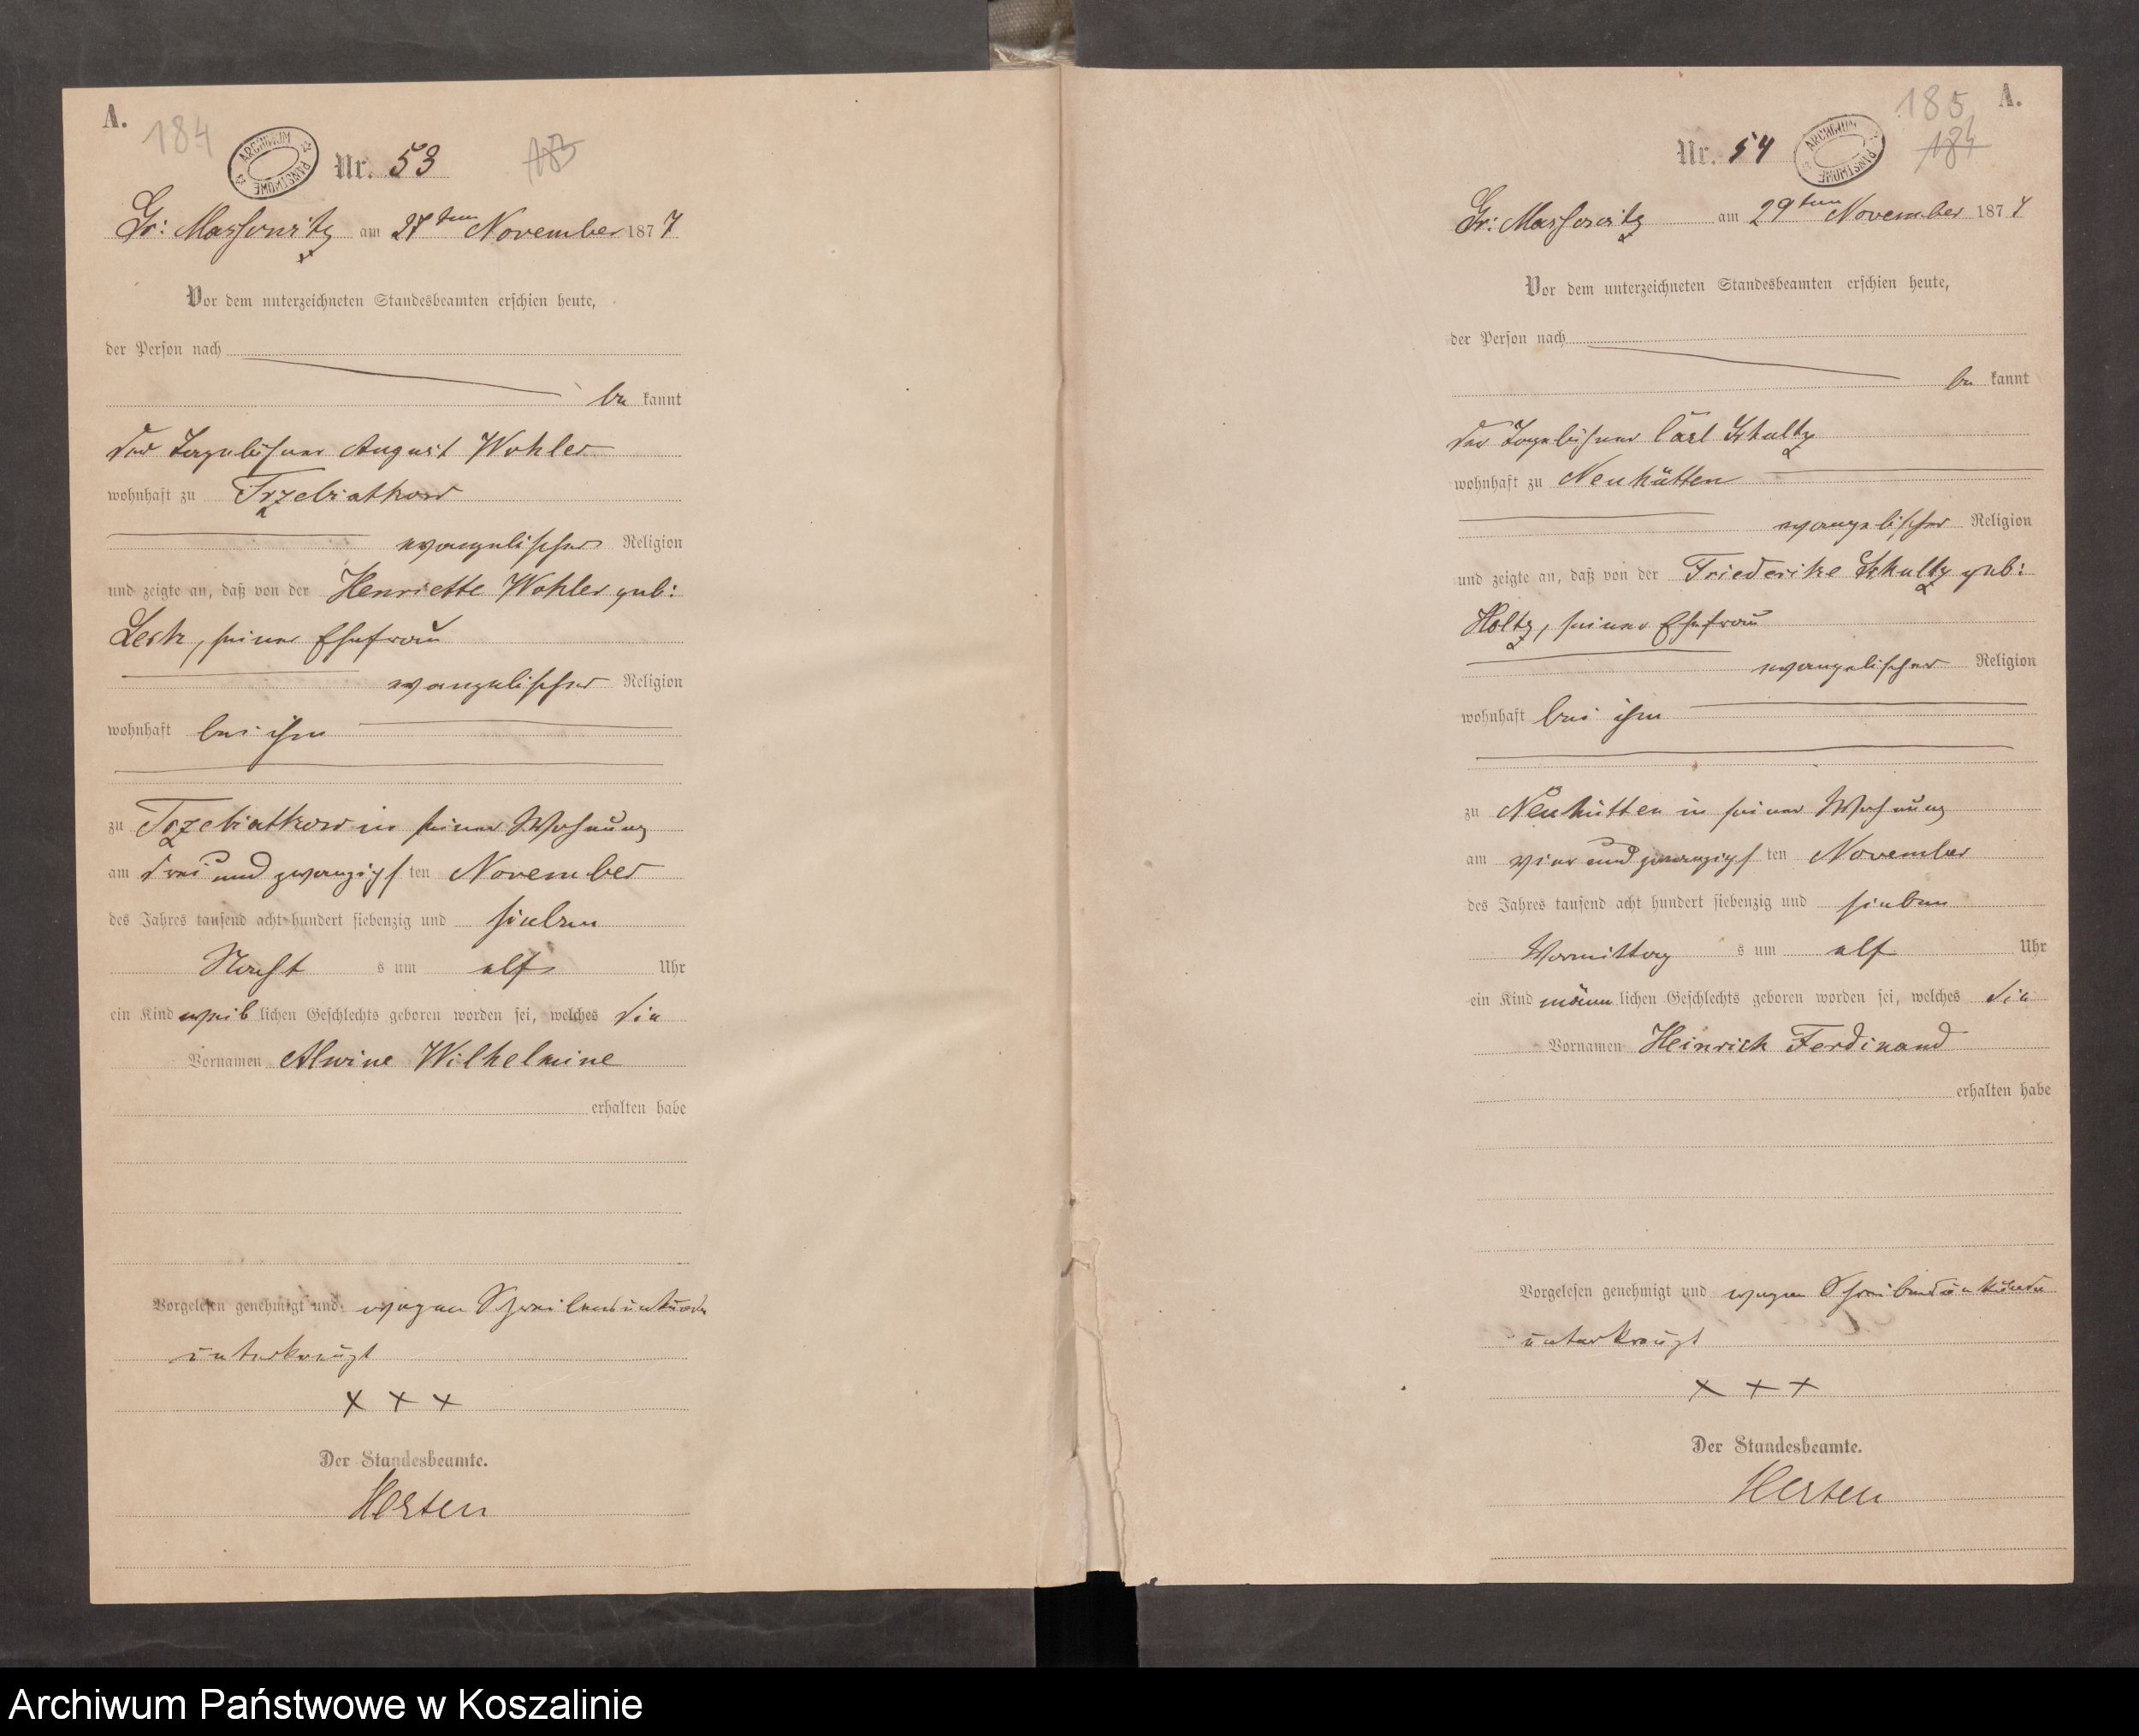 A.
184
ARCHIWUM PAŃSTWOWE
Nr. 53
183
Gr: Massowitz am 27ten November 1877
Vor dem unterzeichneten Standesbeamten erschien heute,
der Person nach
be kannt
der Tagelöhner August Wohler
wohnhaft zu Trzebiatkow
evangelischer Religion
und zeigte an, daß von der Henriette Wohler geb:
Leck, seiner Ehefrau
evangelischer Religion
wohnhaft bei ihm
zu Trzebiatkow in seiner Wohnung
am drei und zwanzigs ten November
des Jahres tausend acht hundert siebenzig und sieben
Nacht s um elf Uhr
ein Kind weib lichen Geschlechts geboren worden sei, welches die
Vornamen Alwine Wilhelmine
erhalten habe
Vorgelesen genehmigt und wegen Schreibensunkunde
unterkreuzt
X X X
Der Standesbeamte.
Herten
A.
185
184
Nr. 54
ARCHIWUM PAŃSTWOWE
Gr: Massowitz am 29ten November 1877
Vor dem unterzeichneten Standesbeamten erschien heute,
der Person nach
be kannt
der Tagelöhner Carl Schultz
wohnhaft zu Neuhütten
evangelischer Religion
und zeigte an, daß von der Friederike Schultz geb:
Holtz, seiner Ehefrau
evangelischer Religion
wohnhaft bei ihm
zu Neuhütten in seiner Wohnung
am vier und zwanzigs ten November
des Jahres tausend acht hundert siebenzig und sieben
Vormittag s um elf Uhr
ein Kind männ lichen Geschlechts geboren worden sei, welches die
Vornamen Heinrich Ferdinand
erhalten habe
Vorgelesen genehmigt und wegen Schreibensunkunde
unterkreuzt
X X X
Der Standesbeamte.
Herten
Archiwum Państwowe w Koszalinie